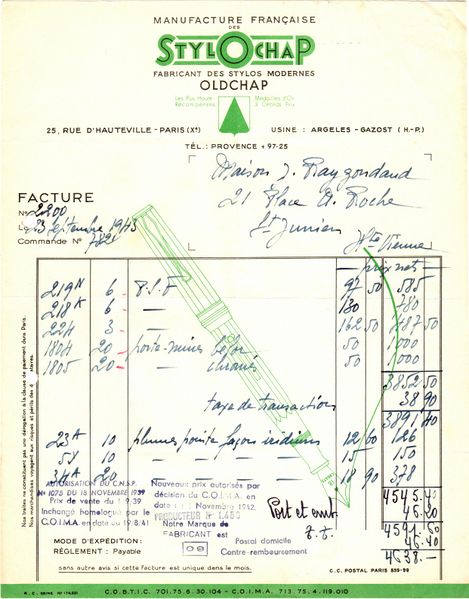 MANUFACTURE FRANÇAISE
DES
STYLOCHAP
FABRICANT DES STYLOS MODERNES
OLDCHAP
Les Plus Hautes Récompenses
Médailles d'Or
3 Grands Prix
25, RUE D'HAUTEVILLE - PARIS (Xe)
USINE : ARGELES - GAZOST (H.-P.)
TÉL. : PROVENCE + 97-25
Maison J. Raygondaud
21 Place A. Roche
St Junien
Hte Vienne
FACTURE
No 2200
Le 23 Septembre 1943
Commande No
prix nets
219 N 6 P.S.F 97 50 585
218 K 6 — 130 780
224 3 — 162 50 487 50
1804 20 porte-mines 50 1000
1805 20 — chromés 50 1000
3852 50
taxe de transactions 38 90
3891 40
23 A 10 plumes pointe façon iridium 12 60 126
5Y 10 — 15 150
34 A 20 — 18 90 378
4545.40
4591.
4638.—
Port et emb.
AUTORISATION DU C.N.S.P.
No 1075 DU 18 NOVEMBRE 1939
Prix de vente du 1.9.39
Inchangé homologué par le
C.O.I.M.A. en date du 19.8/41
Nouveaux prix autorisés par
décision du C.O.I.M.A. en
date du Novembre 1942.
PRODUCTEUR No 1.450
Notre Marque de
FABRICANT est
09
MODE D'EXPÉDITION :
RÈGLEMENT : Payable
Postal domicile
Contre-remboursement
sans autre avis si cette facture est unique dans le mois.
C.C. POSTAL PARIS 539-99
Nos traites ne constituent pas une dérogation à la clause de paiement dans Paris.
Nos marchandises voyagent aux risques et périls des
R. C. SEINE No
C.O.B.T.I.C. 701.75.6.30.104 - C.O.I.M.A. 713 75.4.119.010